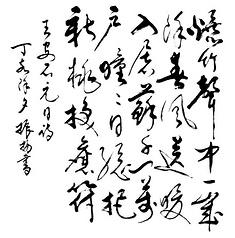 爆竹聲中一歲
除春風送暖
入屠蘇千萬
戶曈々日總把
新桃換舊符
王安石元日詩
丁亥除夕振書